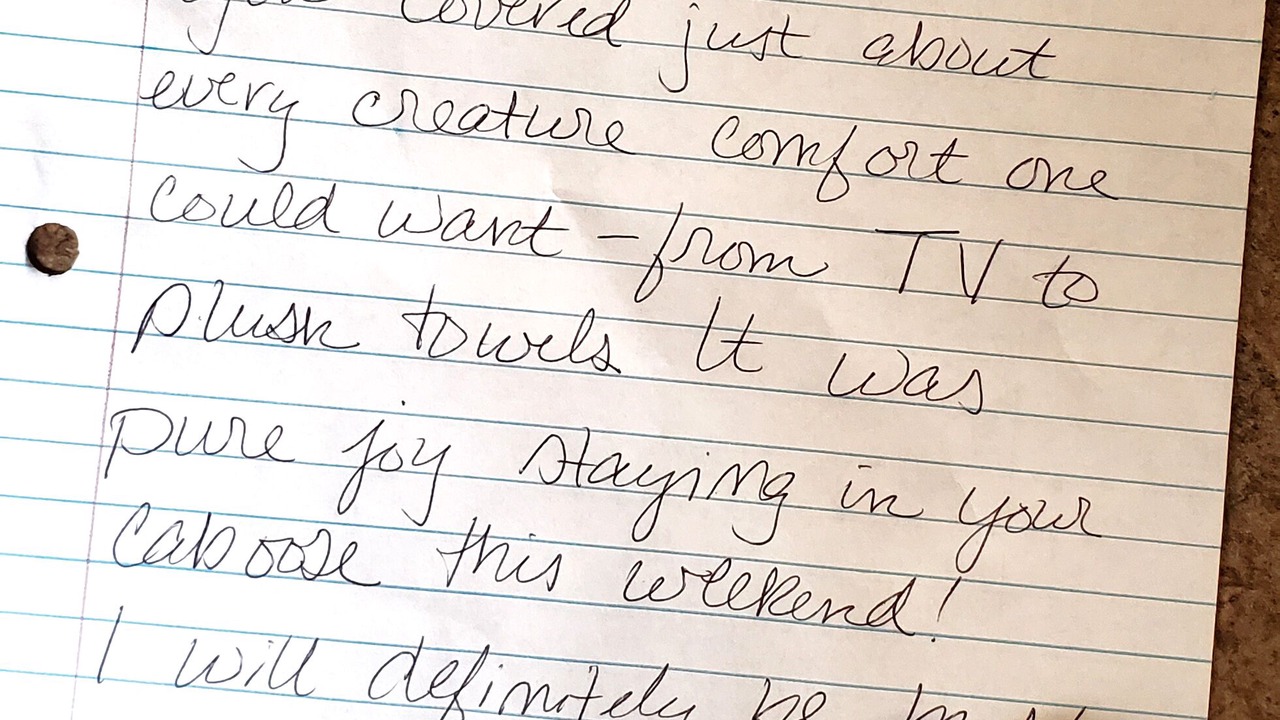 you covered just about
every creature comfort one
could want - from TV to
plush towels It was
pure joy staying in your
caboose this weekend!
I will definitely be